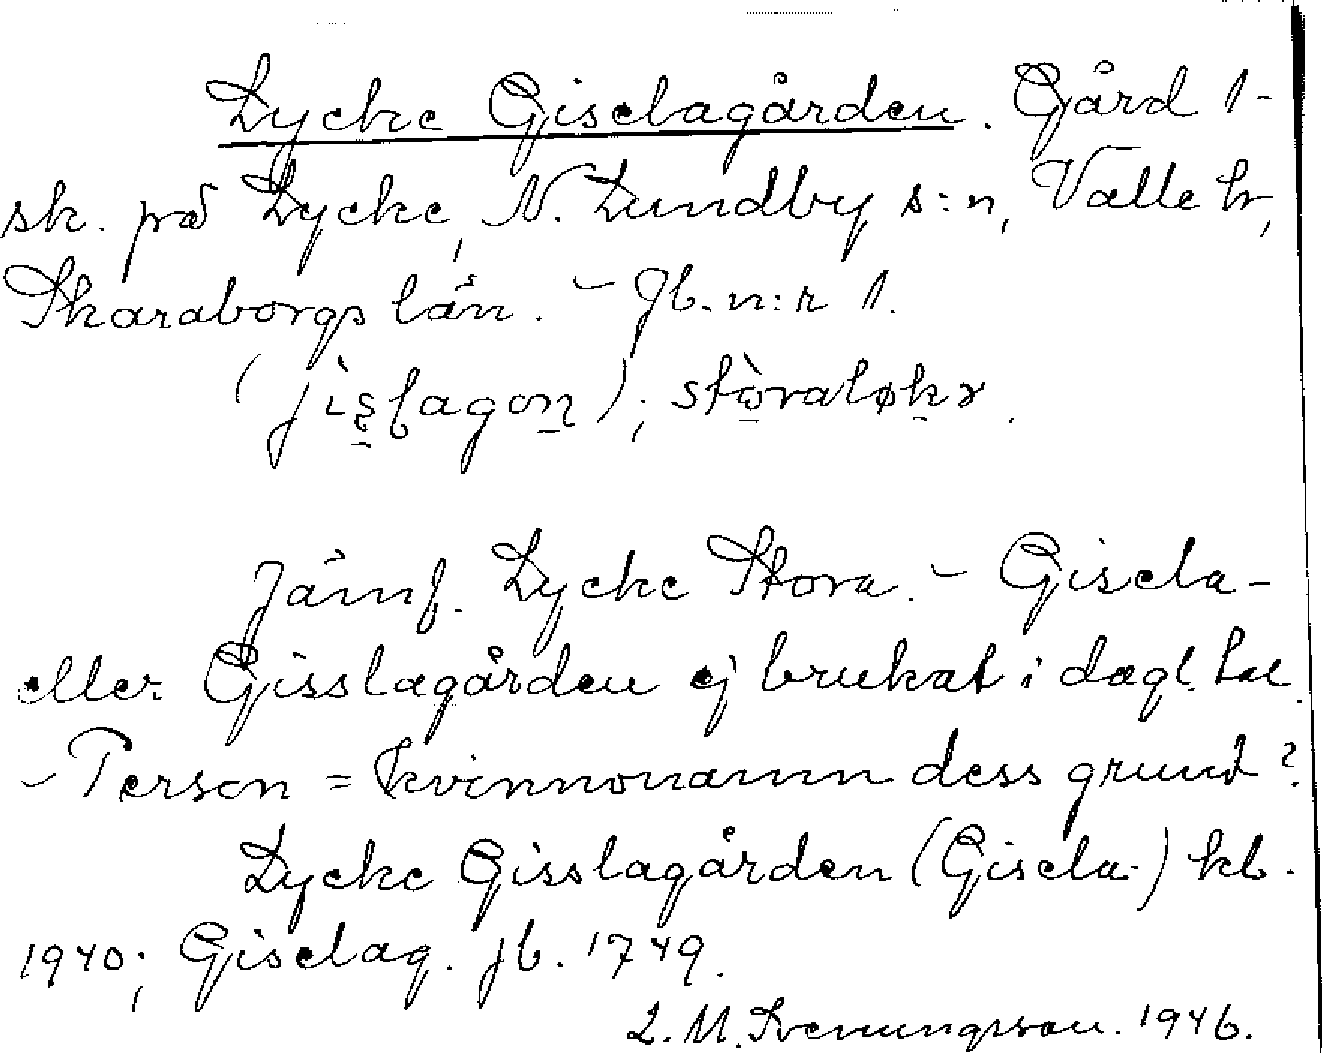 Lycke Giselagården. Gård 1-
sk. på Lycke, N. Lundby s:n, Valle hr,
Skaraborgs län. – Jb. n:r 1.
Jämf. Lycke Stora. – Gisela-
eller Gisslagården ej brukat i dagl. tal.
– Person = kvinnonamn dess grund?
Lycke Gisslagården (Gisela-) kb.
1940; Giselag. jb. 1749.
L. M. Svenungsson. 1946.